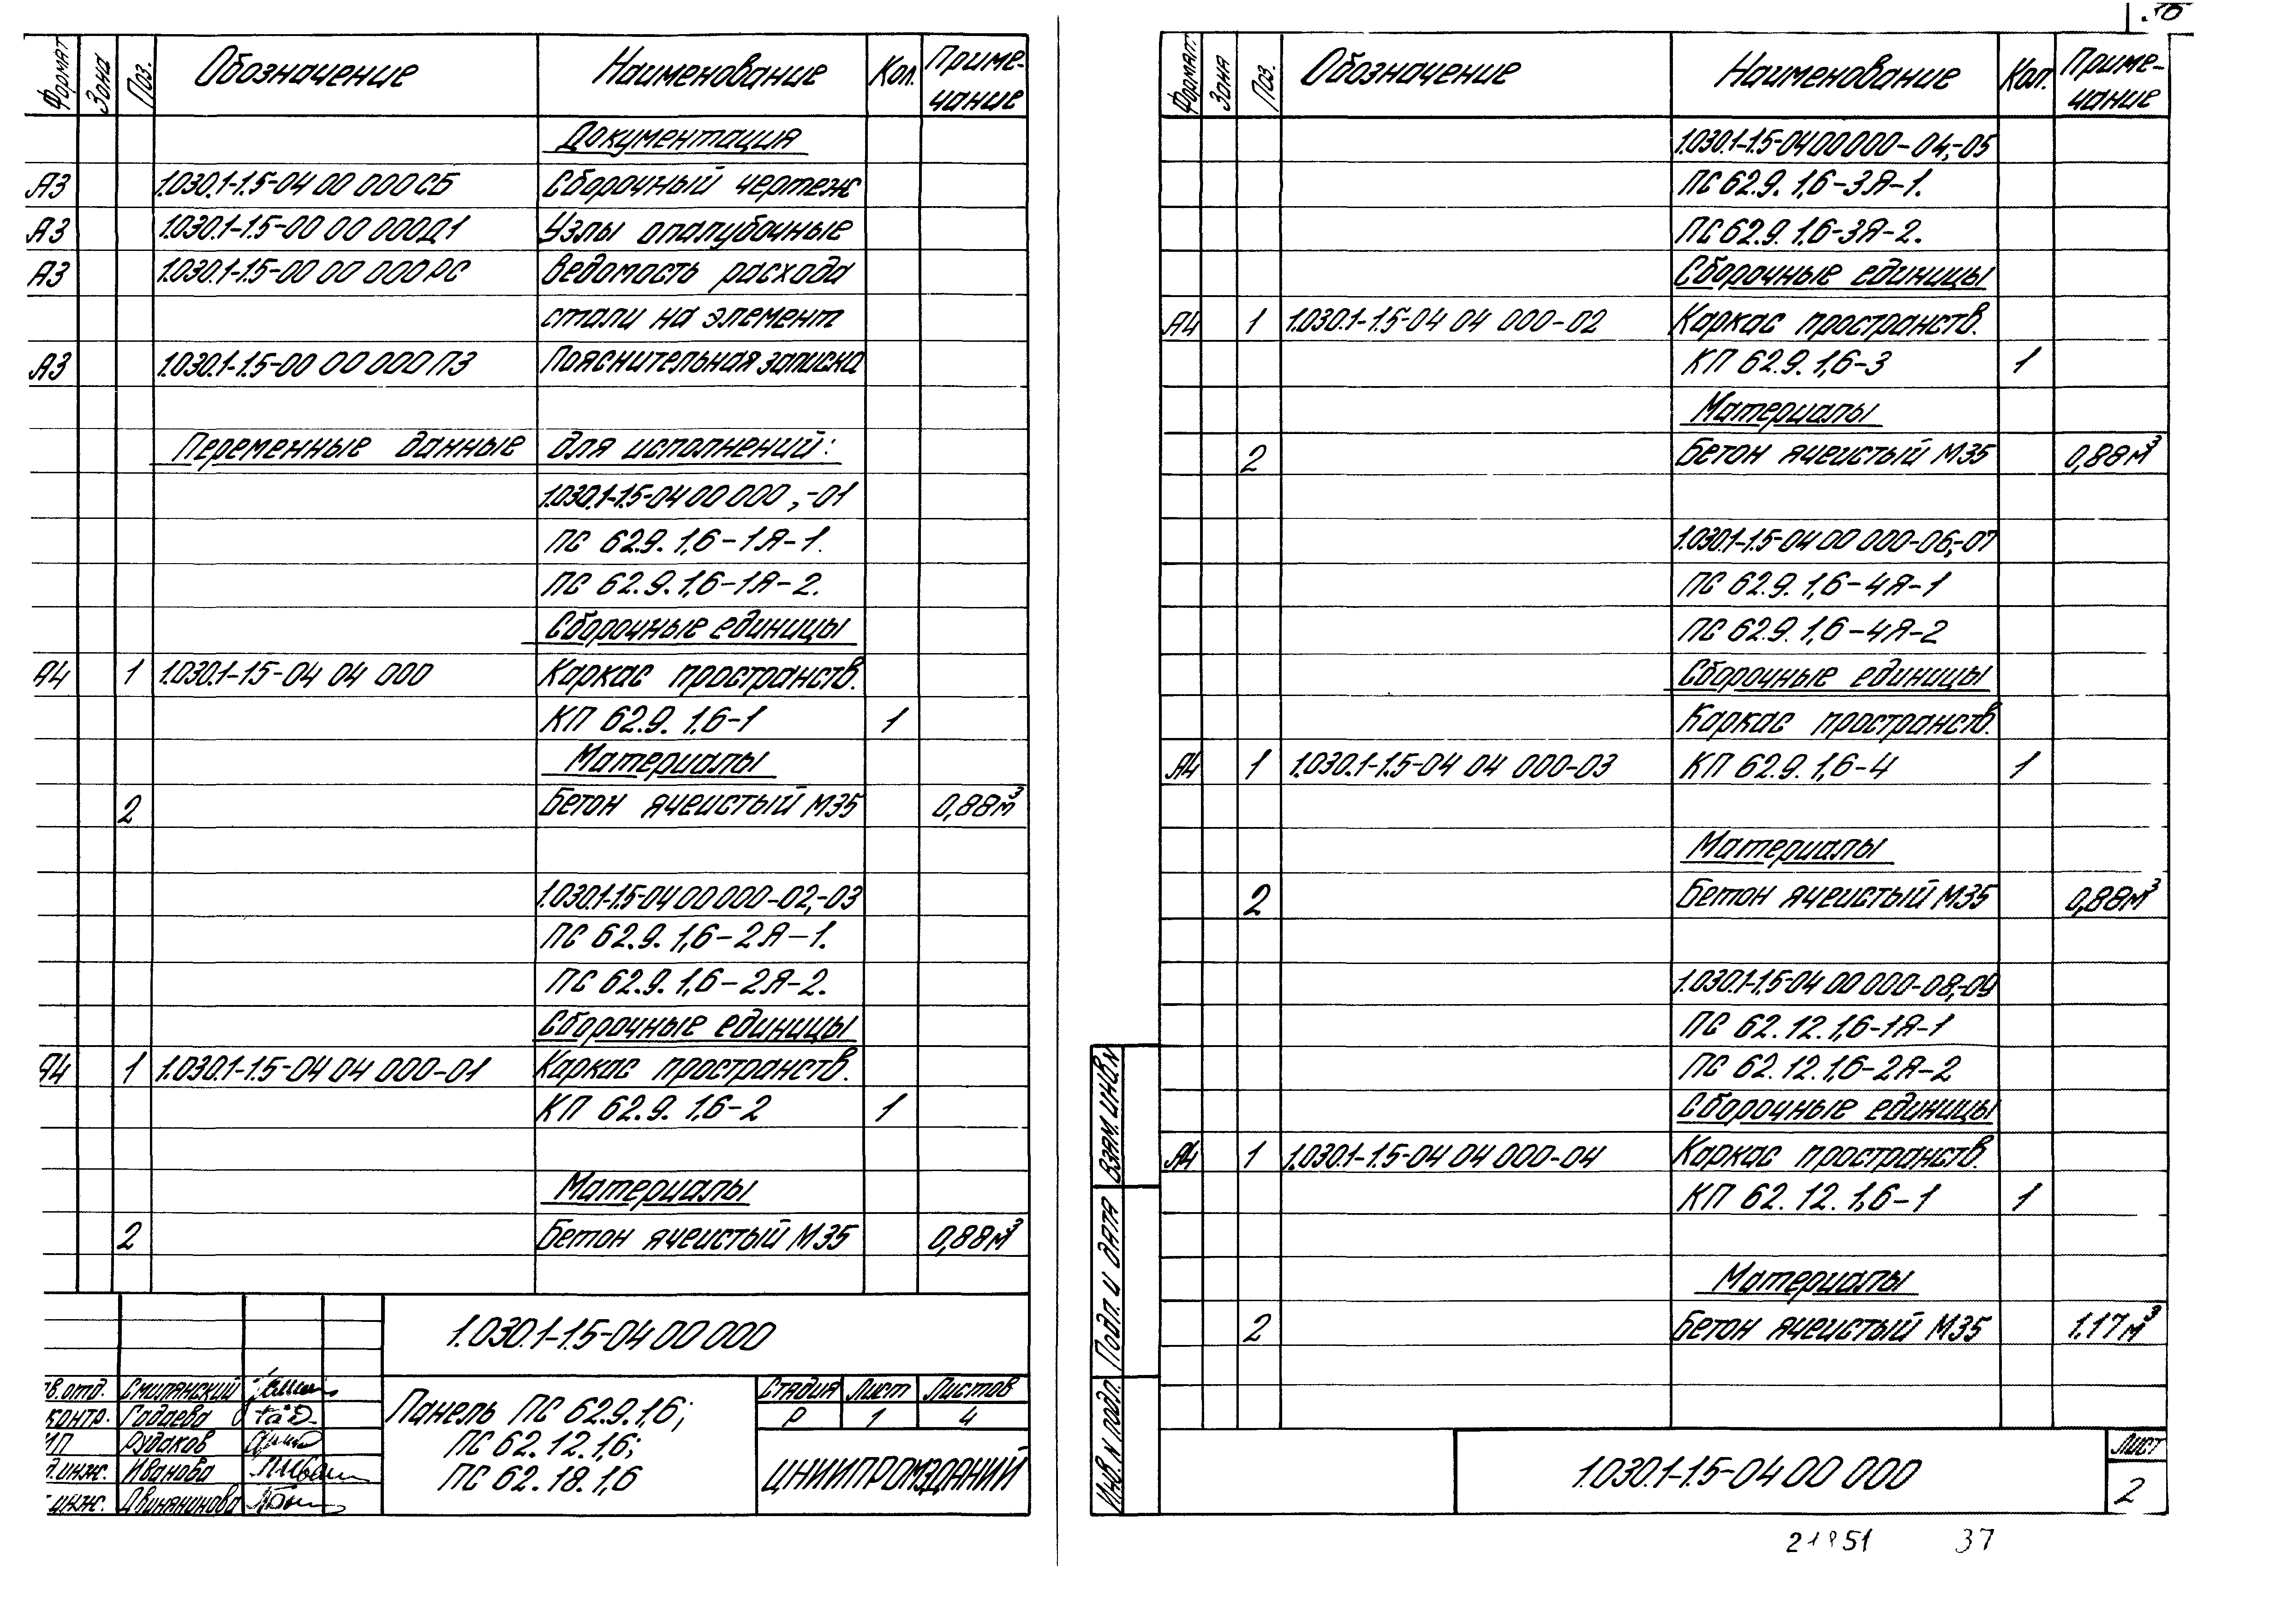 Формат Зона Поз. Обозначение Наименование Кол. Приме-
чание
Документация
А3 1.030.1-1.5-04 00 000СБ Сборочный чертеж
А3 1.030.1-1.5-00 00 000Д1 Узлы опалубочные
А3 1.030.1-1.5-00 00 000РС Ведомость расхода
стали на элемент
А3 1.030.1-1.5-00 00 000ПЗ Пояснительная записка
Переменные данные для исполнений:
1.030.1-1.5-04 00 000,-01
ПС 62.9.1,6-1Я-1.
ПС 62.9.1,6-1Я-2.
Сборочные единицы
А4 1 1.030.1-1.5-04 04 000 Каркас пространств.
КП 62.9.1,6-1 1
Материалы
2 Бетон ячеистый М35 0,88м³
1.030.1-1.5-04 00 000-02,-03
ПС 62.9.1,6-2Я-1.
ПС 62.9.1,6-2Я-2.
Сборочные единицы
А4 1 1.030.1-1.5-04 04 000-01 Каркас пространств.
КП 62.9.1,6-2 1
Материалы
2 Бетон ячеистый М35 0,88м³
1.030.1-1.5-04 00 000
в.отд. Смилянский
контр. Гадаева
ИП Рудаков
д.инж. Иванова
инж. Двинянинова
Панель ПС 62.9.1,6;
ПС 62.12.1,6;
ПС 62.18.1,6
Стадия Лист Листов
Р 1 4
ЦНИИПРОМЗДАНИЙ
Формат Зона Поз. Обозначение Наименование Кол. Приме-
чание
1.030.1-1.5-04 00 000-04,-05
ПС 62.9.1,6-3Я-1.
ПС 62.9.1,6-3Я-2.
Сборочные единицы
А4 1 1.030.1-1.5-04 04 000-02 Каркас пространств.
КП 62.9.1,6-3 1
Материалы
2 Бетон ячеистый М35 0,88м³
1.030.1-1.5-04 00 000-06,-07
ПС 62.9.1,6-4Я-1
ПС 62.9.1,6-4Я-2
Сборочные единицы
Каркас пространств.
А4 1 1.030.1-1.5-04 04 000-03 КП 62.9.1,6-4 1
Материалы
2 Бетон ячеистый М35 0,88м³
1.030.1-1.5-04 00 000-08,-09
ПС 62.12.1,6-1Я-1
ПС 62.12.1,6-2Я-2
Сборочные единицы
А4 1 1.030.1-1.5-04 04 000-04 Каркас пространств.
КП 62.12.1,6-1 1
Материалы
2 Бетон ячеистый М35 1.17м³
Взам.инв.N
Подп. и дата
Инв.N подл.
1.030.1-1.5-04 00 000
Лист
2
37